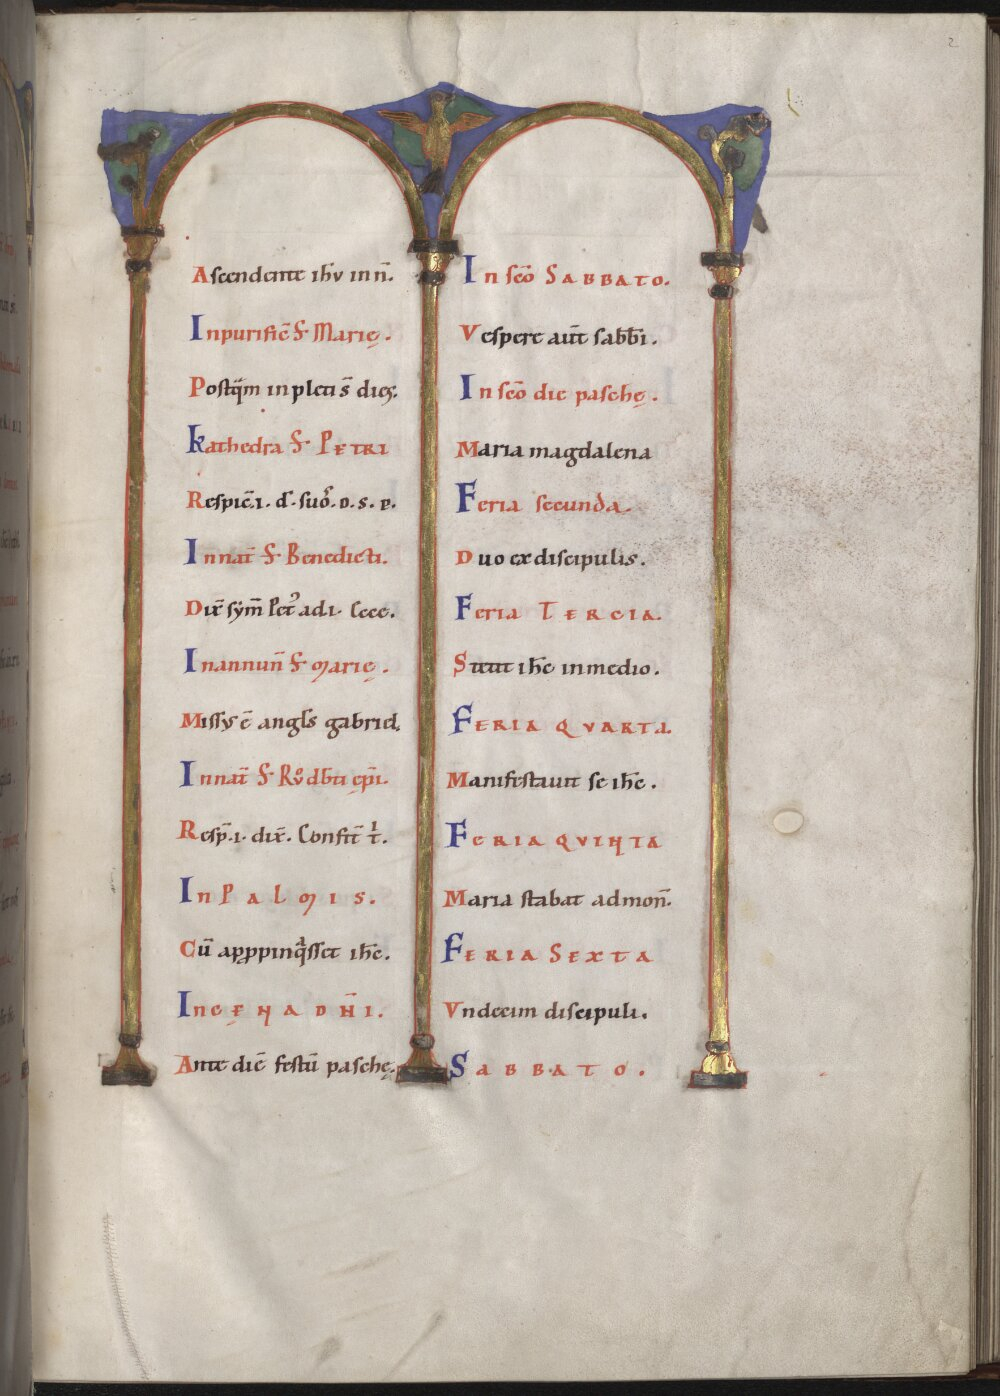 2
Ascendente ihv in ñ.
In purificē S Marię.
Postq̄m inpleti s̄ dies.
Kathedra S PETRI
Respic̄.i. d. suoꝝ. D. S. P.
In nat̄ S Benedicti.
Dix̄ sym̄ Petꝰ ad i. Ecce.
In annun̄ S Marię.
Missvs ē angl̄s gabriel.
In nat̄ S Rvͦdb̄ti ep̄i.
Resp̄.i. dix̄. Confit̄ t̄.
In PALMIS.
Cū apꝓpinq̄sset ih̄c.
In CĘNA DN̄I.
Ante diē festū paschę.
In sc̄o SABBATO.
Vespere aūt sabb̄i.
In sc̄o die paschę.
Maria magdalena
Feria secunda.
Duo ex discipulis.
Feria TERCIA.
Stetit ih̄c in medio.
FERIA QVARTA.
Manifestauit se ih̄c.
FERIA QVINTA
Maria stabat ad mon̄.
FERIA SEXTA
Vndecim discipuli.
SABBATO.